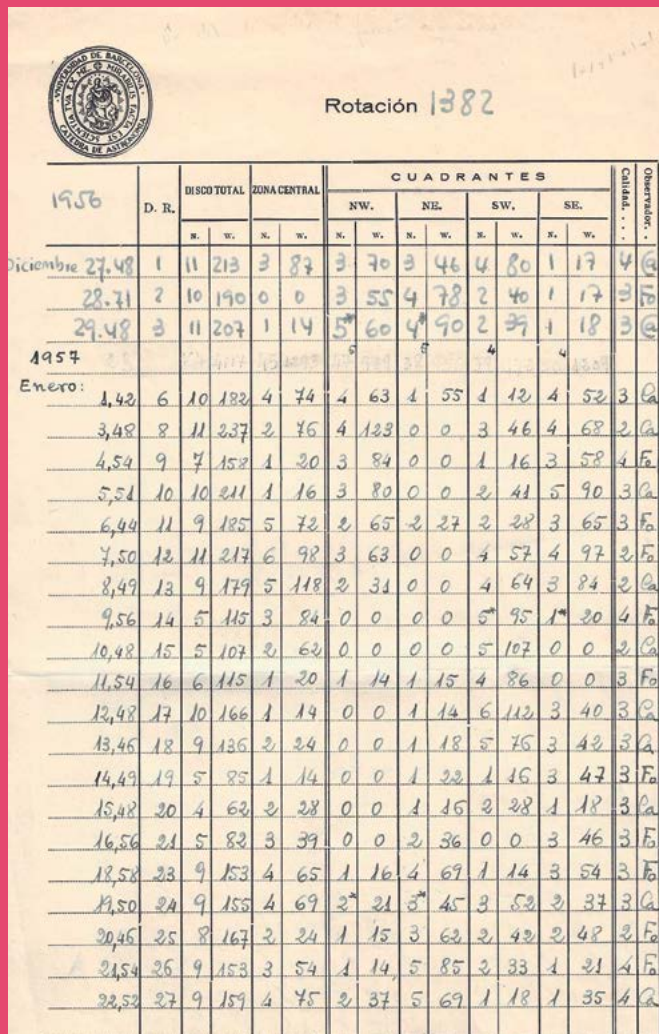 UNIVERSIDAD DE BARCELONA
CATEDRA DE ASTRONOMIA
Rotación 1382
1956 D. R. DISCO TOTAL ZONA CENTRAL CUADRANTES Calidad. . . . Observador. .
NW. NE. SW. SE.
N. W. N. W. N. W. N. W. N. W. N. W.
Diciembre 27.48 1 11 213 3 87 3 70 3 46 4 80 1 17 4 @
28.71 2 10 190 0 0 3 55 4 78 2 40 1 17 3 Fo
29.48 3 11 207 1 14 5* 60 4* 90 2 39 1 18 3 @
1957 5 5 4 4
Enero:
1,42 6 10 182 4 74 4 63 1 55 1 12 4 52 3 Ca
3,48 8 11 237 2 76 4 123 0 0 3 46 4 68 2 Ca
4,54 9 7 158 1 20 3 84 0 0 1 16 3 58 4 Fo
5,51 10 10 211 1 16 3 80 0 0 2 41 5 90 3 Ca
6,44 11 9 185 5 72 2 65 2 27 2 28 3 65 3 Fo
7,50 12 11 217 6 98 3 63 0 0 4 57 4 97 2 Fo
8,49 13 9 179 5 118 2 31 0 0 4 64 3 84 2 Ca
9,56 14 5 115 3 84 0 0 0 0 5* 95 1* 20 4 Fo
10,48 15 5 107 2 62 0 0 0 0 5 107 0 0 2 Ca
11,54 16 6 115 1 20 1 14 1 15 4 86 0 0 3 Fo
12,48 17 10 166 1 14 0 0 1 14 6 112 3 40 3 Ca
13,46 18 9 136 2 24 0 0 1 18 5 76 3 42 3 Ca
14,49 19 5 85 1 14 0 0 1 22 1 16 3 47 3 Fo
15,48 20 4 62 2 28 0 0 1 16 2 28 1 18 3 Ca
16,56 21 5 82 3 39 0 0 2 36 0 0 3 46 3 Fo
18,58 23 9 153 4 65 1 16 4 69 1 14 3 54 3 Fo
19,50 24 9 155 4 69 2* 21 3* 45 3 52 2 37 3 Ca
20,46 25 8 167 2 24 1 15 3 62 2 42 2 48 2 Fo
21,54 26 9 153 3 54 1 14 5 85 2 33 1 21 4 Fo
22,52 27 9 159 4 75 2 37 5 69 1 18 1 35 4 Ca